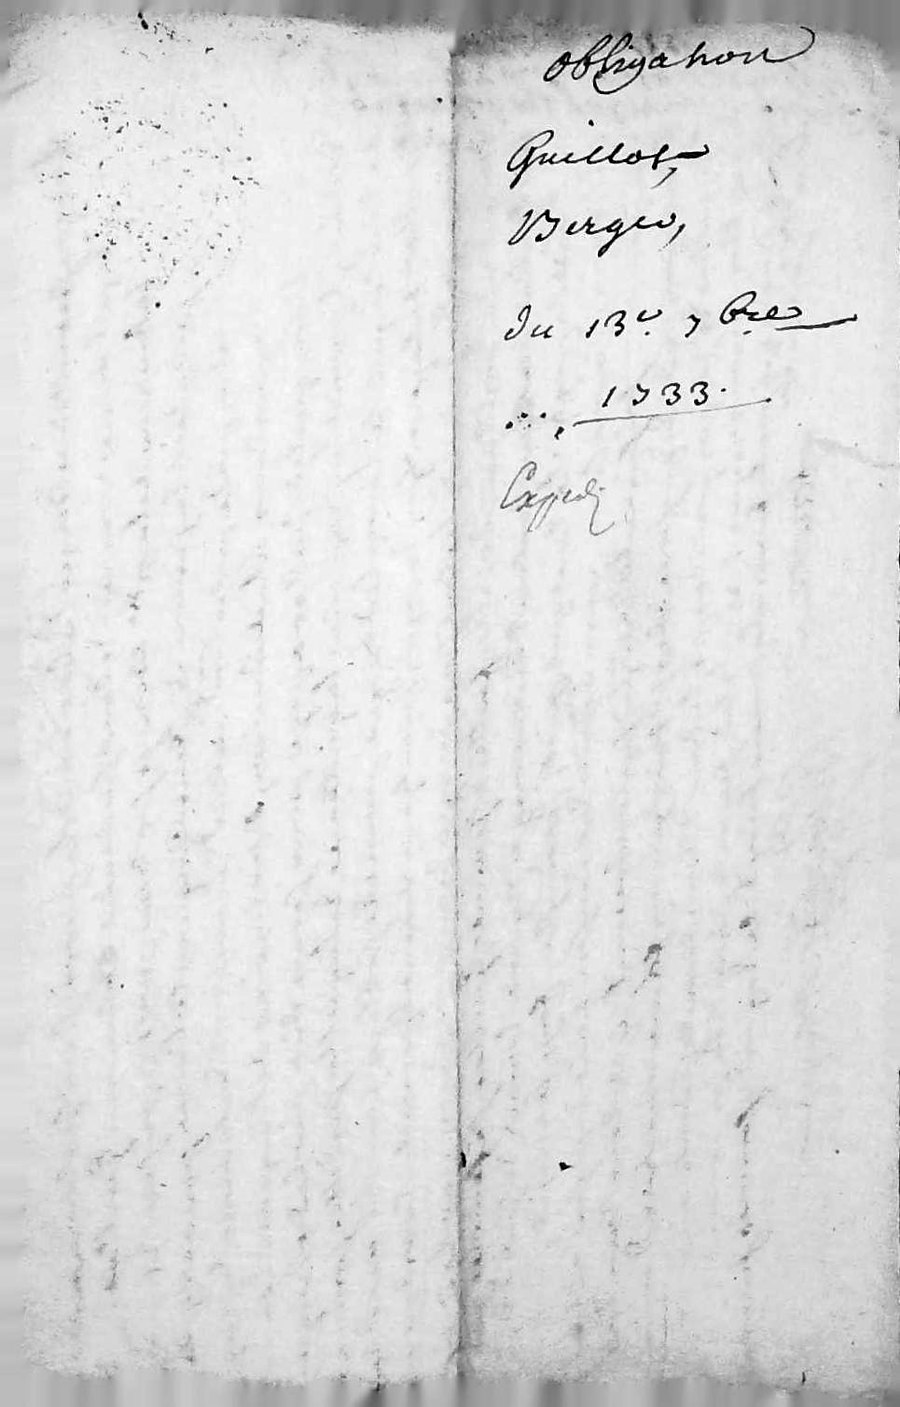 obligation
Guillot,
Berger,
du 13e. 7bre
1733.
Expedi